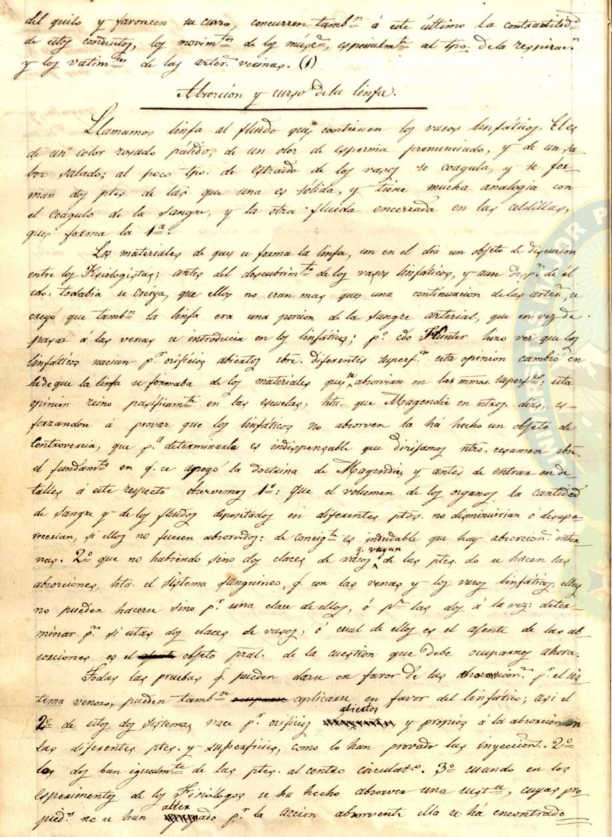 del quilo y favorecen su curso, concurren tambn. á este último la contractilidd.
de estos conductos, los movimtos. de los músc., especialmte. al tpo. de la respiracn.
y los latimtos. de las arters. vecinas. (1)
Absorcion y curso de la linfa.
Llamamos linfa al fluido que contienen los vasos linfáticos. El es
de un color rosado pálido; de un olor de esperma pronunciado, y de un sa
bor salado; al poco tpo. de estraido de los vasos se coagula, y se for
man dos ptes. de las que una es solida, y tiene mucha analogia con
el coagulo de la sangre, y la otra fluida encerrada en las celdillas,
que forma la 1ª.
Los materiales de que se forma la linfa, son en el dia un objeto de discusion
entre los Fisiologistas; antes del descubrimto. de los vasos linfáticos, y aun desps. de él
cdo. todabia se creiya, que ellos no eran mas que una continuacion de las arters. se
creyó que tambn. la linfa era una porcion de la sangre arterial, que en vez de
pasar á las venas se introducia en los linfáticos; po. cdo Hunter hizo ver que los
linfáticos nacian pr. orificios abiertos sbre. diferentes superfs. esta opinion cambió en
la de que la linfa se formaba de los materiales que se absorvian en las mmas. superfs.; esta
opinion reinó pacificamte. en las escuelas, hta. que Magendie en ntros. dias, es-
forzandose á provar que los linfáticos no absorven la ha hecho un objeto de
controversia, que pa. determinarla es indispensable que dirijamos ntro. ecsamen sbre.
el fundamto. en q. se apoyó la doctrina de Magendie, y antes de entrar en de
talles á este respecto observemos 1º: que el volumen de los organos la cantidad
de sangre y de los fluidos depositados en diferentes ptes. no disminuirian ó desapa
recerian, si ellos no fuesen absorvidos: de consigte. es indudable que hay absorcions. inter
nas. 2º que no habiendo sino dos claces de vasos q. vayan de las ptes. do se hacen las
absorciones, hta. el sistema sanguineo, q. son las venas y los vasos linfáticos, ellas
no pueden hacerse sino pr. una clase de ellos, ó pr. las dos á la vez: deter-
minar pr. si estas dos claces de vasos, ó cual de ellos es el ajente de las ab
sorciones es el objeto pral. de la cuestion que debe ocuparnos ahora.
Todas las pruebas q. pueden darse en favor de las absorcions. pr. el sis
tema venoso, pueden tambn. aplicarse en favor del linfático; asi el
2º de estos dos sistemas nace pr. orificios abiertos y propios á la absorcion en
las diferentes ptes. y superficies, como lo han provado las inyeccions. 2º
los dos ban igualmte. de las ptes. al centro circulato. 3º cuando en los
esperimentos de los Fisiólogos se ha hecho absorver una susta., cuyas pro
pieds. no se han alterado pr. la accion absorvente ella se ha encontrado